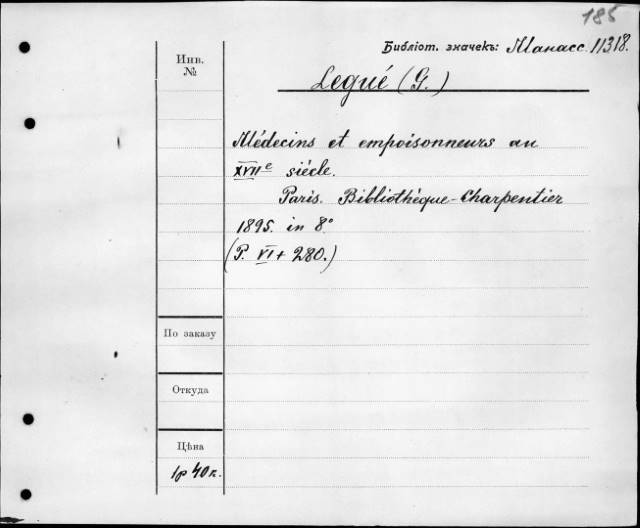 185
Библіот. значекъ: Манасс. 11318.
Инв.
№
Legué (G.)
Médecins et empoisonneurs au
XVIIe siécle.
Paris. Bibliothèque-Charpentier
1895. in 8°
(P. VI + 280.)
По заказу
Откуда
Цѣна
1р 40к.